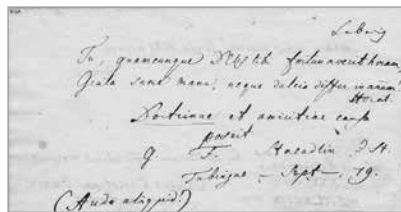 Tu, quamcunque Deus tibi fortunaverit horam,
Grata sume manu, neque dulcia differ in annum
Horat.
Doctrinae et amicitiae causa
posuit
Tubingae – Sept – 19.
(Aude aliquid!)